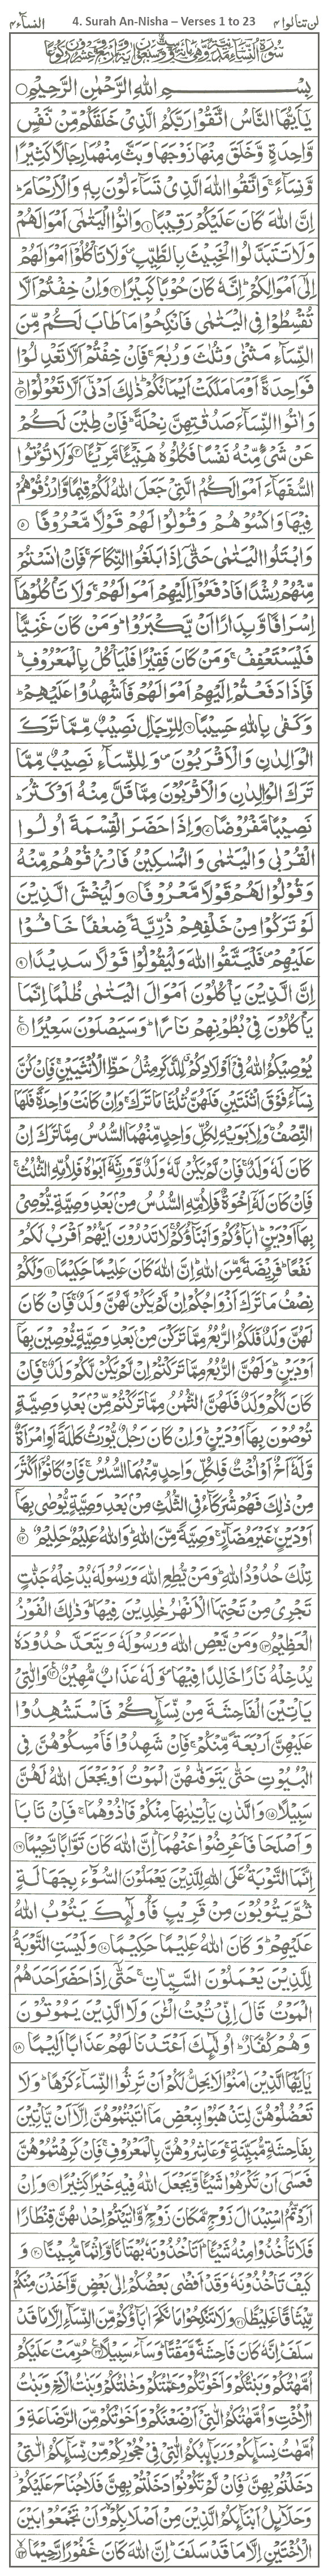 لن تنالوا ۴
4. Surah An-Nisha – Verses 1 to 23
النساء ۴
بِسْمِ اللّٰهِ الرَّحْمٰنِ الرَّحِيْمِ
يٰۤاَيُّهَا النَّاسُ اتَّقُوْا رَبَّكُمُ الَّذِيْ خَلَقَكُمْ مِّنْ نَّفْسٍ
وَّاحِدَةٍ وَّخَلَقَ مِنْهَا زَوْجَهَا وَبَثَّ مِنْهُمَا رِجَالًا كَثِيْرًا
وَّنِسَآءً ۚ وَاتَّقُوا اللّٰهَ الَّذِيْ تَسَآءَلُوْنَ بِهٖ وَالْاَرْحَامَ ؕ
اِنَّ اللّٰهَ كَانَ عَلَيْكُمْ رَقِيْبًا ﴿۱﴾ وَاٰتُوا الْيَتٰمٰۤى اَمْوَالَهُمْ
وَلَا تَتَبَدَّلُوا الْخَبِيْثَ بِالطَّيِّبِ ۪ وَلَا تَاْكُلُوْۤا اَمْوَالَهُمْ
اِلٰۤى اَمْوَالِكُمْ ؕ اِنَّهٗ كَانَ حُوْبًا كَبِيْرًا ﴿۲﴾ وَاِنْ خِفْتُمْ اَلَّا
تُقْسِطُوْا فِي الْيَتٰمٰى فَانْكِحُوْا مَا طَابَ لَكُمْ مِّنَ
النِّسَآءِ مَثْنٰى وَثُلٰثَ وَرُبٰعَ ۚ فَاِنْ خِفْتُمْ اَلَّا تَعْدِلُوْا
فَوَاحِدَةً اَوْ مَا مَلَكَتْ اَيْمَانُكُمْ ؕ ذٰلِكَ اَدْنٰۤى اَلَّا تَعُوْلُوْا ﴿۳﴾
وَاٰتُوا النِّسَآءَ صَدُقٰتِهِنَّ نِحْلَةً ؕ فَاِنْ طِبْنَ لَكُمْ
عَنْ شَيْءٍ مِّنْهُ نَفْسًا فَكُلُوْهُ هَنِيْٓـًٔا مَّرِيْٓـًٔا ﴿۴﴾ وَلَا تُؤْتُوا
السُّفَهَآءَ اَمْوَالَكُمُ الَّتِيْ جَعَلَ اللّٰهُ لَكُمْ قِيٰمًا وَّارْزُقُوْهُمْ
فِيْهَا وَاكْسُوْهُمْ وَقُوْلُوْا لَهُمْ قَوْلًا مَّعْرُوْفًا ﴿۵﴾
وَابْتَلُوا الْيَتٰمٰى حَتّٰۤى اِذَا بَلَغُوا النِّكَاحَ ۚ فَاِنْ اٰنَسْتُمْ
مِّنْهُمْ رُشْدًا فَادْفَعُوْۤا اِلَيْهِمْ اَمْوَالَهُمْ ۚ وَلَا تَاْكُلُوْهَاۤ
اِسْرَافًا وَّبِدَارًا اَنْ يَّكْبَرُوْا ؕ وَمَنْ كَانَ غَنِيًّا
فَلْيَسْتَعْفِفْ ۚ وَمَنْ كَانَ فَقِيْرًا فَلْيَاْكُلْ بِالْمَعْرُوْفِ ؕ
فَاِذَا دَفَعْتُمْ اِلَيْهِمْ اَمْوَالَهُمْ فَاَشْهِدُوْا عَلَيْهِمْ ؕ
وَكَفٰى بِاللّٰهِ حَسِيْبًا ﴿۶﴾ لِلرِّجَالِ نَصِيْبٌ مِّمَّا تَرَكَ
الْوَالِدٰنِ وَالْاَقْرَبُوْنَ ۪ وَلِلنِّسَآءِ نَصِيْبٌ مِّمَّا
تَرَكَ الْوَالِدٰنِ وَالْاَقْرَبُوْنَ مِمَّا قَلَّ مِنْهُ اَوْ كَثُرَ ؕ
نَصِيْبًا مَّفْرُوْضًا ﴿۷﴾ وَاِذَا حَضَرَ الْقِسْمَةَ اُولُوا
الْقُرْبٰى وَالْيَتٰمٰى وَالْمَسٰكِيْنُ فَارْزُقُوْهُمْ مِّنْهُ
وَقُوْلُوْا لَهُمْ قَوْلًا مَّعْرُوْفًا ﴿۸﴾ وَلْيَخْشَ الَّذِيْنَ
لَوْ تَرَكُوْا مِنْ خَلْفِهِمْ ذُرِّيَّةً ضِعٰفًا خَافُوْا
عَلَيْهِمْ ۪ فَلْيَتَّقُوا اللّٰهَ وَلْيَقُوْلُوْا قَوْلًا سَدِيْدًا ﴿۹﴾
اِنَّ الَّذِيْنَ يَاْكُلُوْنَ اَمْوَالَ الْيَتٰمٰى ظُلْمًا اِنَّمَا
يَاْكُلُوْنَ فِيْ بُطُوْنِهِمْ نَارًا ؕ وَسَيَصْلَوْنَ سَعِيْرًا ﴿۱۰﴾
يُوْصِيْكُمُ اللّٰهُ فِيْۤ اَوْلَادِكُمْ ٭ لِلذَّكَرِ مِثْلُ حَظِّ الْاُنْثَيَيْنِ ۚ فَاِنْ كُنَّ
نِسَآءً فَوْقَ اثْنَتَيْنِ فَلَهُنَّ ثُلُثَا مَا تَرَكَ ۚ وَاِنْ كَانَتْ وَاحِدَةً فَلَهَا
النِّصْفُ ؕ وَلِاَبَوَيْهِ لِكُلِّ وَاحِدٍ مِّنْهُمَا السُّدُسُ مِمَّا تَرَكَ اِنْ
كَانَ لَهٗ وَلَدٌ ۚ فَاِنْ لَّمْ يَكُنْ لَّهٗ وَلَدٌ وَّوَرِثَهٗۤ اَبَوٰهُ فَلِاُمِّهِ الثُّلُثُ ۚ
فَاِنْ كَانَ لَهٗۤ اِخْوَةٌ فَلِاُمِّهِ السُّدُسُ مِنْۢ بَعْدِ وَصِيَّةٍ يُّوْصِيْ
بِهَاۤ اَوْ دَيْنٍ ؕ اٰبَآؤُكُمْ وَاَبْنَآؤُكُمْ ۚ لَا تَدْرُوْنَ اَيُّهُمْ اَقْرَبُ لَكُمْ
نَفْعًا ؕ فَرِيْضَةً مِّنَ اللّٰهِ ؕ اِنَّ اللّٰهَ كَانَ عَلِيْمًا حَكِيْمًا ﴿۱۱﴾ وَلَكُمْ
نِصْفُ مَا تَرَكَ اَزْوَاجُكُمْ اِنْ لَّمْ يَكُنْ لَّهُنَّ وَلَدٌ ۚ فَاِنْ كَانَ
لَهُنَّ وَلَدٌ فَلَكُمُ الرُّبُعُ مِمَّا تَرَكْنَ مِنْۢ بَعْدِ وَصِيَّةٍ يُّوْصِيْنَ بِهَاۤ
اَوْ دَيْنٍ ؕ وَلَهُنَّ الرُّبُعُ مِمَّا تَرَكْتُمْ اِنْ لَّمْ يَكُنْ لَّكُمْ وَلَدٌ ۚ فَاِنْ
كَانَ لَكُمْ وَلَدٌ فَلَهُنَّ الثُّمُنُ مِمَّا تَرَكْتُمْ مِّنْۢ بَعْدِ وَصِيَّةٍ
تُوْصُوْنَ بِهَاۤ اَوْ دَيْنٍ ؕ وَاِنْ كَانَ رَجُلٌ يُّوْرَثُ كَلٰلَةً اَوِ امْرَاَةٌ
وَّلَهٗۤ اَخٌ اَوْ اُخْتٌ فَلِكُلِّ وَاحِدٍ مِّنْهُمَا السُّدُسُ ۚ فَاِنْ كَانُوْۤا اَكْثَرَ
مِنْ ذٰلِكَ فَهُمْ شُرَكَآءُ فِي الثُّلُثِ مِنْۢ بَعْدِ وَصِيَّةٍ يُّوْصٰى بِهَاۤ
اَوْ دَيْنٍ ۙ غَيْرَ مُضَآرٍّ ۚ وَصِيَّةً مِّنَ اللّٰهِ ؕ وَاللّٰهُ عَلِيْمٌ حَلِيْمٌ ﴿۱۲﴾
تِلْكَ حُدُوْدُ اللّٰهِ ؕ وَمَنْ يُّطِعِ اللّٰهَ وَرَسُوْلَهٗ يُدْخِلْهُ جَنّٰتٍ
تَجْرِيْ مِنْ تَحْتِهَا الْاَنْهٰرُ خٰلِدِيْنَ فِيْهَا ؕ وَذٰلِكَ الْفَوْزُ
الْعَظِيْمُ ﴿۱۳﴾ وَمَنْ يَّعْصِ اللّٰهَ وَرَسُوْلَهٗ وَيَتَعَدَّ حُدُوْدَهٗ
يُدْخِلْهُ نَارًا خَالِدًا فِيْهَا ۪ وَلَهٗ عَذَابٌ مُّهِيْنٌ ﴿۱۴﴾ وَالّٰتِيْ
يَاْتِيْنَ الْفَاحِشَةَ مِنْ نِّسَآئِكُمْ فَاسْتَشْهِدُوْا
عَلَيْهِنَّ اَرْبَعَةً مِّنْكُمْ ۚ فَاِنْ شَهِدُوْا فَاَمْسِكُوْهُنَّ فِي
الْبُيُوْتِ حَتّٰى يَتَوَفّٰهُنَّ الْمَوْتُ اَوْ يَجْعَلَ اللّٰهُ لَهُنَّ
سَبِيْلًا ﴿۱۵﴾ وَالَّذٰنِ يَاْتِيٰنِهَا مِنْكُمْ فَاٰذُوْهُمَا ۚ فَاِنْ تَابَا
وَاَصْلَحَا فَاَعْرِضُوْا عَنْهُمَا ؕ اِنَّ اللّٰهَ كَانَ تَوَّابًا رَّحِيْمًا ﴿۱۶﴾
اِنَّمَا التَّوْبَةُ عَلَى اللّٰهِ لِلَّذِيْنَ يَعْمَلُوْنَ السُّوْٓءَ بِجَهَالَةٍ
ثُمَّ يَتُوْبُوْنَ مِنْ قَرِيْبٍ فَاُولٰٓئِكَ يَتُوْبُ اللّٰهُ
عَلَيْهِمْ ؕ وَكَانَ اللّٰهُ عَلِيْمًا حَكِيْمًا ﴿۱۷﴾ وَلَيْسَتِ التَّوْبَةُ
لِلَّذِيْنَ يَعْمَلُوْنَ السَّيِّاٰتِ ۚ حَتّٰۤى اِذَا حَضَرَ اَحَدَهُمُ
الْمَوْتُ قَالَ اِنِّيْ تُبْتُ الْـٰٔنَ وَلَا الَّذِيْنَ يَمُوْتُوْنَ
وَهُمْ كُفَّارٌ ؕ اُولٰٓئِكَ اَعْتَدْنَا لَهُمْ عَذَابًا اَلِيْمًا ﴿۱۸﴾
يٰۤاَيُّهَا الَّذِيْنَ اٰمَنُوْا لَا يَحِلُّ لَكُمْ اَنْ تَرِثُوا النِّسَآءَ كَرْهًا ؕ وَلَا
تَعْضُلُوْهُنَّ لِتَذْهَبُوْا بِبَعْضِ مَاۤ اٰتَيْتُمُوْهُنَّ اِلَّاۤ اَنْ يَّاْتِيْنَ
بِفَاحِشَةٍ مُّبَيِّنَةٍ ۚ وَعَاشِرُوْهُنَّ بِالْمَعْرُوْفِ ۚ فَاِنْ كَرِهْتُمُوْهُنَّ
فَعَسٰۤى اَنْ تَكْرَهُوْا شَيْـًٔا وَّيَجْعَلَ اللّٰهُ فِيْهِ خَيْرًا كَثِيْرًا ﴿۱۹﴾ وَاِنْ
اَرَدْتُّمُ اسْتِبْدَالَ زَوْجٍ مَّكَانَ زَوْجٍ ۙ وَّاٰتَيْتُمْ اِحْدٰىهُنَّ قِنْطَارًا
فَلَا تَاْخُذُوْا مِنْهُ شَيْـًٔا ؕ اَتَاْخُذُوْنَهٗ بُهْتَانًا وَّاِثْمًا مُّبِيْنًا ﴿۲۰﴾ وَ
كَيْفَ تَاْخُذُوْنَهٗ وَقَدْ اَفْضٰى بَعْضُكُمْ اِلٰى بَعْضٍ وَّاَخَذْنَ مِنْكُمْ
مِّيْثَاقًا غَلِيْظًا ﴿۲۱﴾ وَلَا تَنْكِحُوْا مَا نَكَحَ اٰبَآؤُكُمْ مِّنَ النِّسَآءِ اِلَّا مَا قَدْ
سَلَفَ ؕ اِنَّهٗ كَانَ فَاحِشَةً وَّمَقْتًا ؕ وَسَآءَ سَبِيْلًا ﴿۲۲﴾ حُرِّمَتْ عَلَيْكُمْ
اُمَّهٰتُكُمْ وَبَنٰتُكُمْ وَاَخَوٰتُكُمْ وَعَمّٰتُكُمْ وَخٰلٰتُكُمْ وَبَنٰتُ الْاَخِ وَبَنٰتُ
الْاُخْتِ وَاُمَّهٰتُكُمُ الّٰتِيْۤ اَرْضَعْنَكُمْ وَاَخَوٰتُكُمْ مِّنَ الرَّضَاعَةِ وَ
اُمَّهٰتُ نِسَآئِكُمْ وَرَبَآئِبُكُمُ الّٰتِيْ فِيْ حُجُوْرِكُمْ مِّنْ نِّسَآئِكُمُ الّٰتِيْ
دَخَلْتُمْ بِهِنَّ ۫ فَاِنْ لَّمْ تَكُوْنُوْا دَخَلْتُمْ بِهِنَّ فَلَا جُنَاحَ عَلَيْكُمْ ۫
وَحَلَآئِلُ اَبْنَآئِكُمُ الَّذِيْنَ مِنْ اَصْلَابِكُمْ ۙ وَاَنْ تَجْمَعُوْا بَيْنَ
الْاُخْتَيْنِ اِلَّا مَا قَدْ سَلَفَ ؕ اِنَّ اللّٰهَ كَانَ غَفُوْرًا رَّحِيْمًا ﴿۲۳﴾